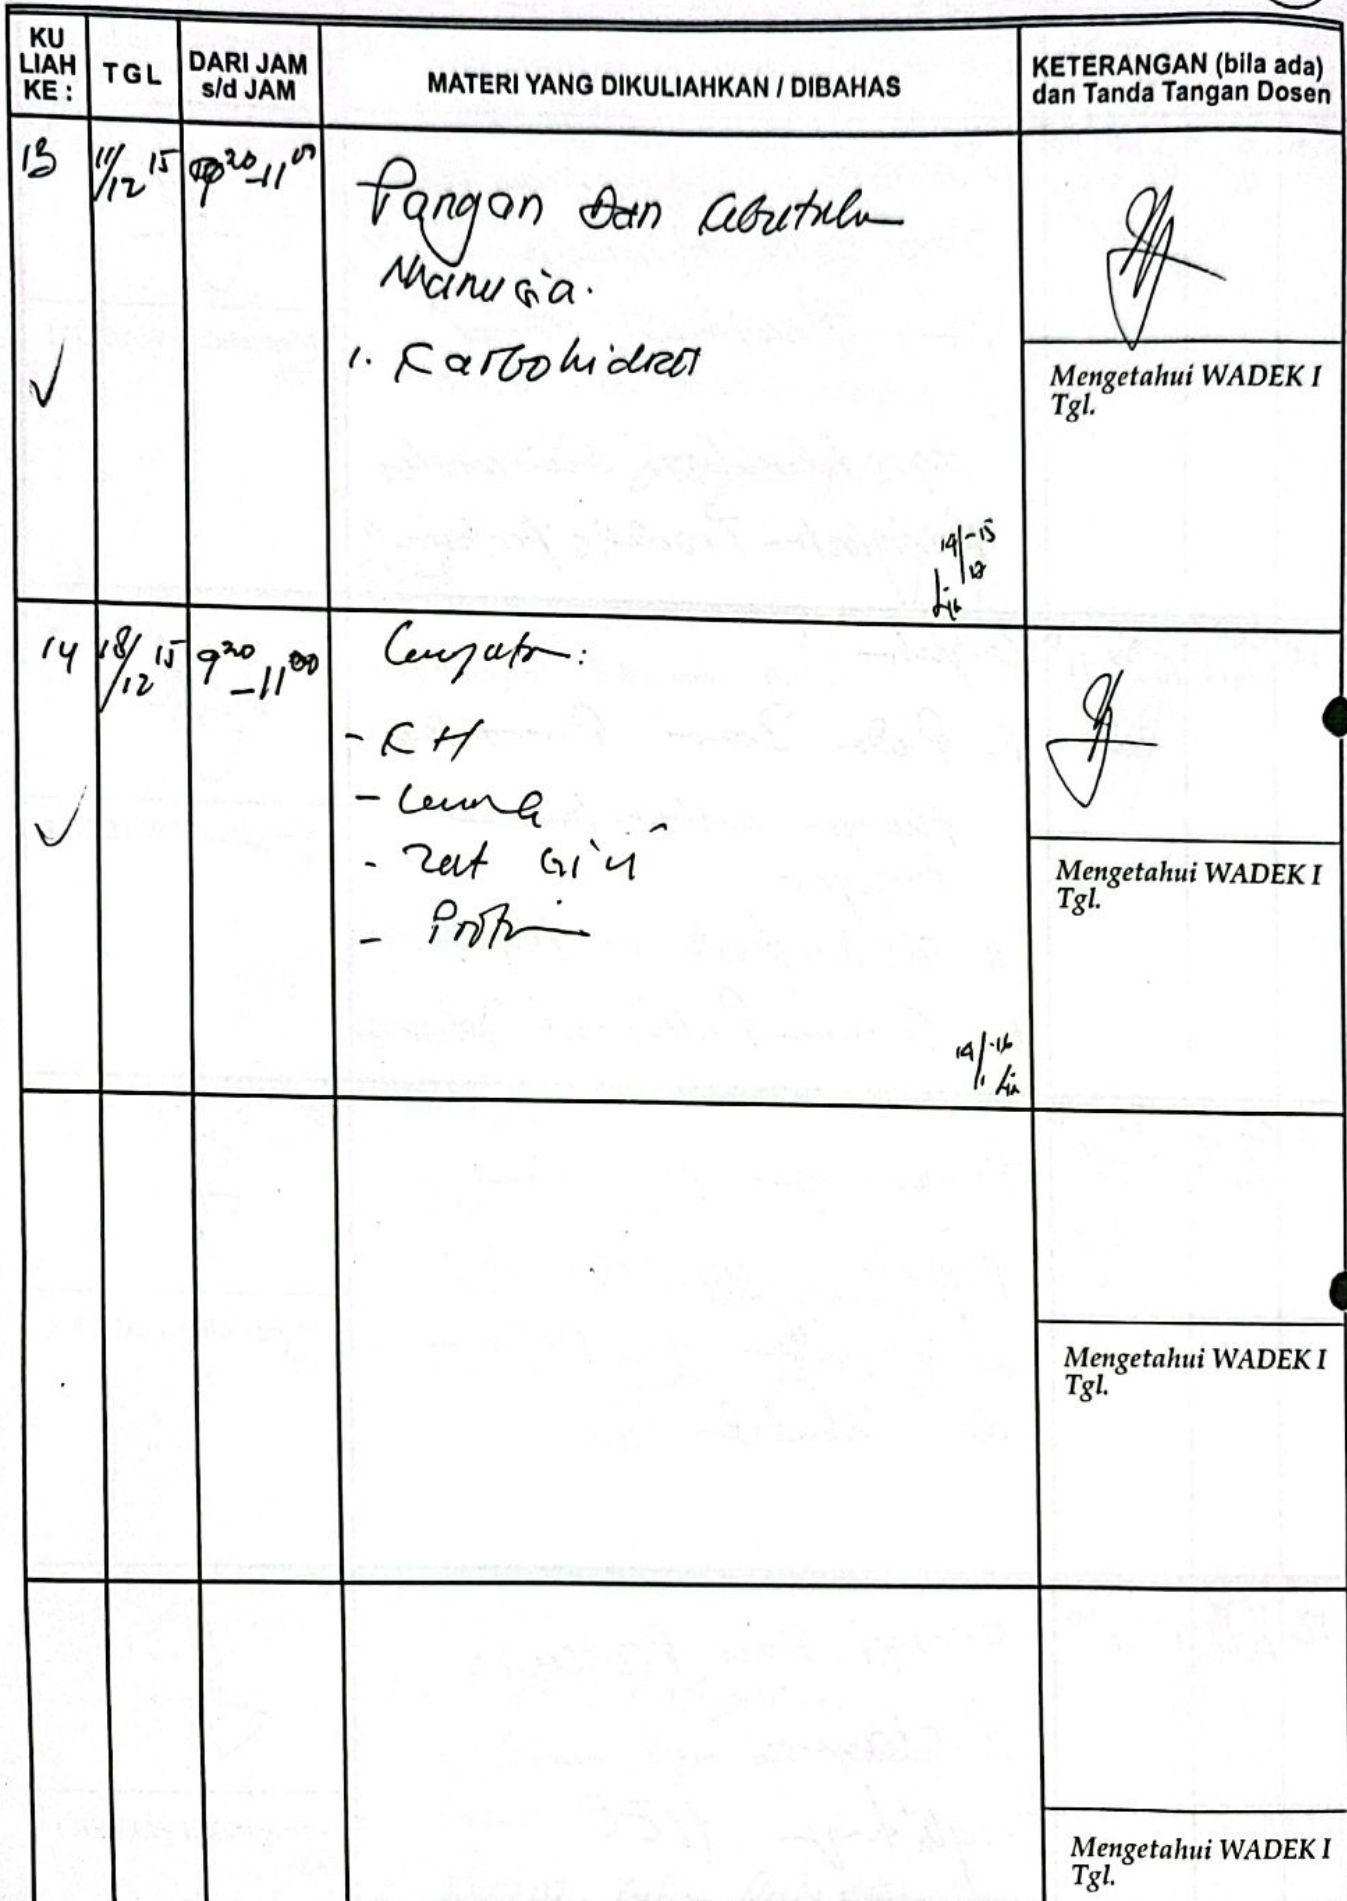 KU LIAH KE :
TGL
DARI JAM s/d JAM
MATERI YANG DIKULIAHKAN / DIBAHAS
KETERANGAN (bila ada) dan Tanda Tangan Dosen
13
11/12 15
9 20 - 11 00
Pangan Dan Kebutuhan
Manusia.
1. Karbohidrat
Mengetahui WADEK I
Tgl.
14/12 -15
14
18/12 15
9 20 - 11 00
Lanjutan :
- KH
- Lemak
- Zat Gizi
- Protein
Mengetahui WADEK I
Tgl.
14/1 -16
Mengetahui WADEK I
Tgl.
Mengetahui WADEK I
Tgl.